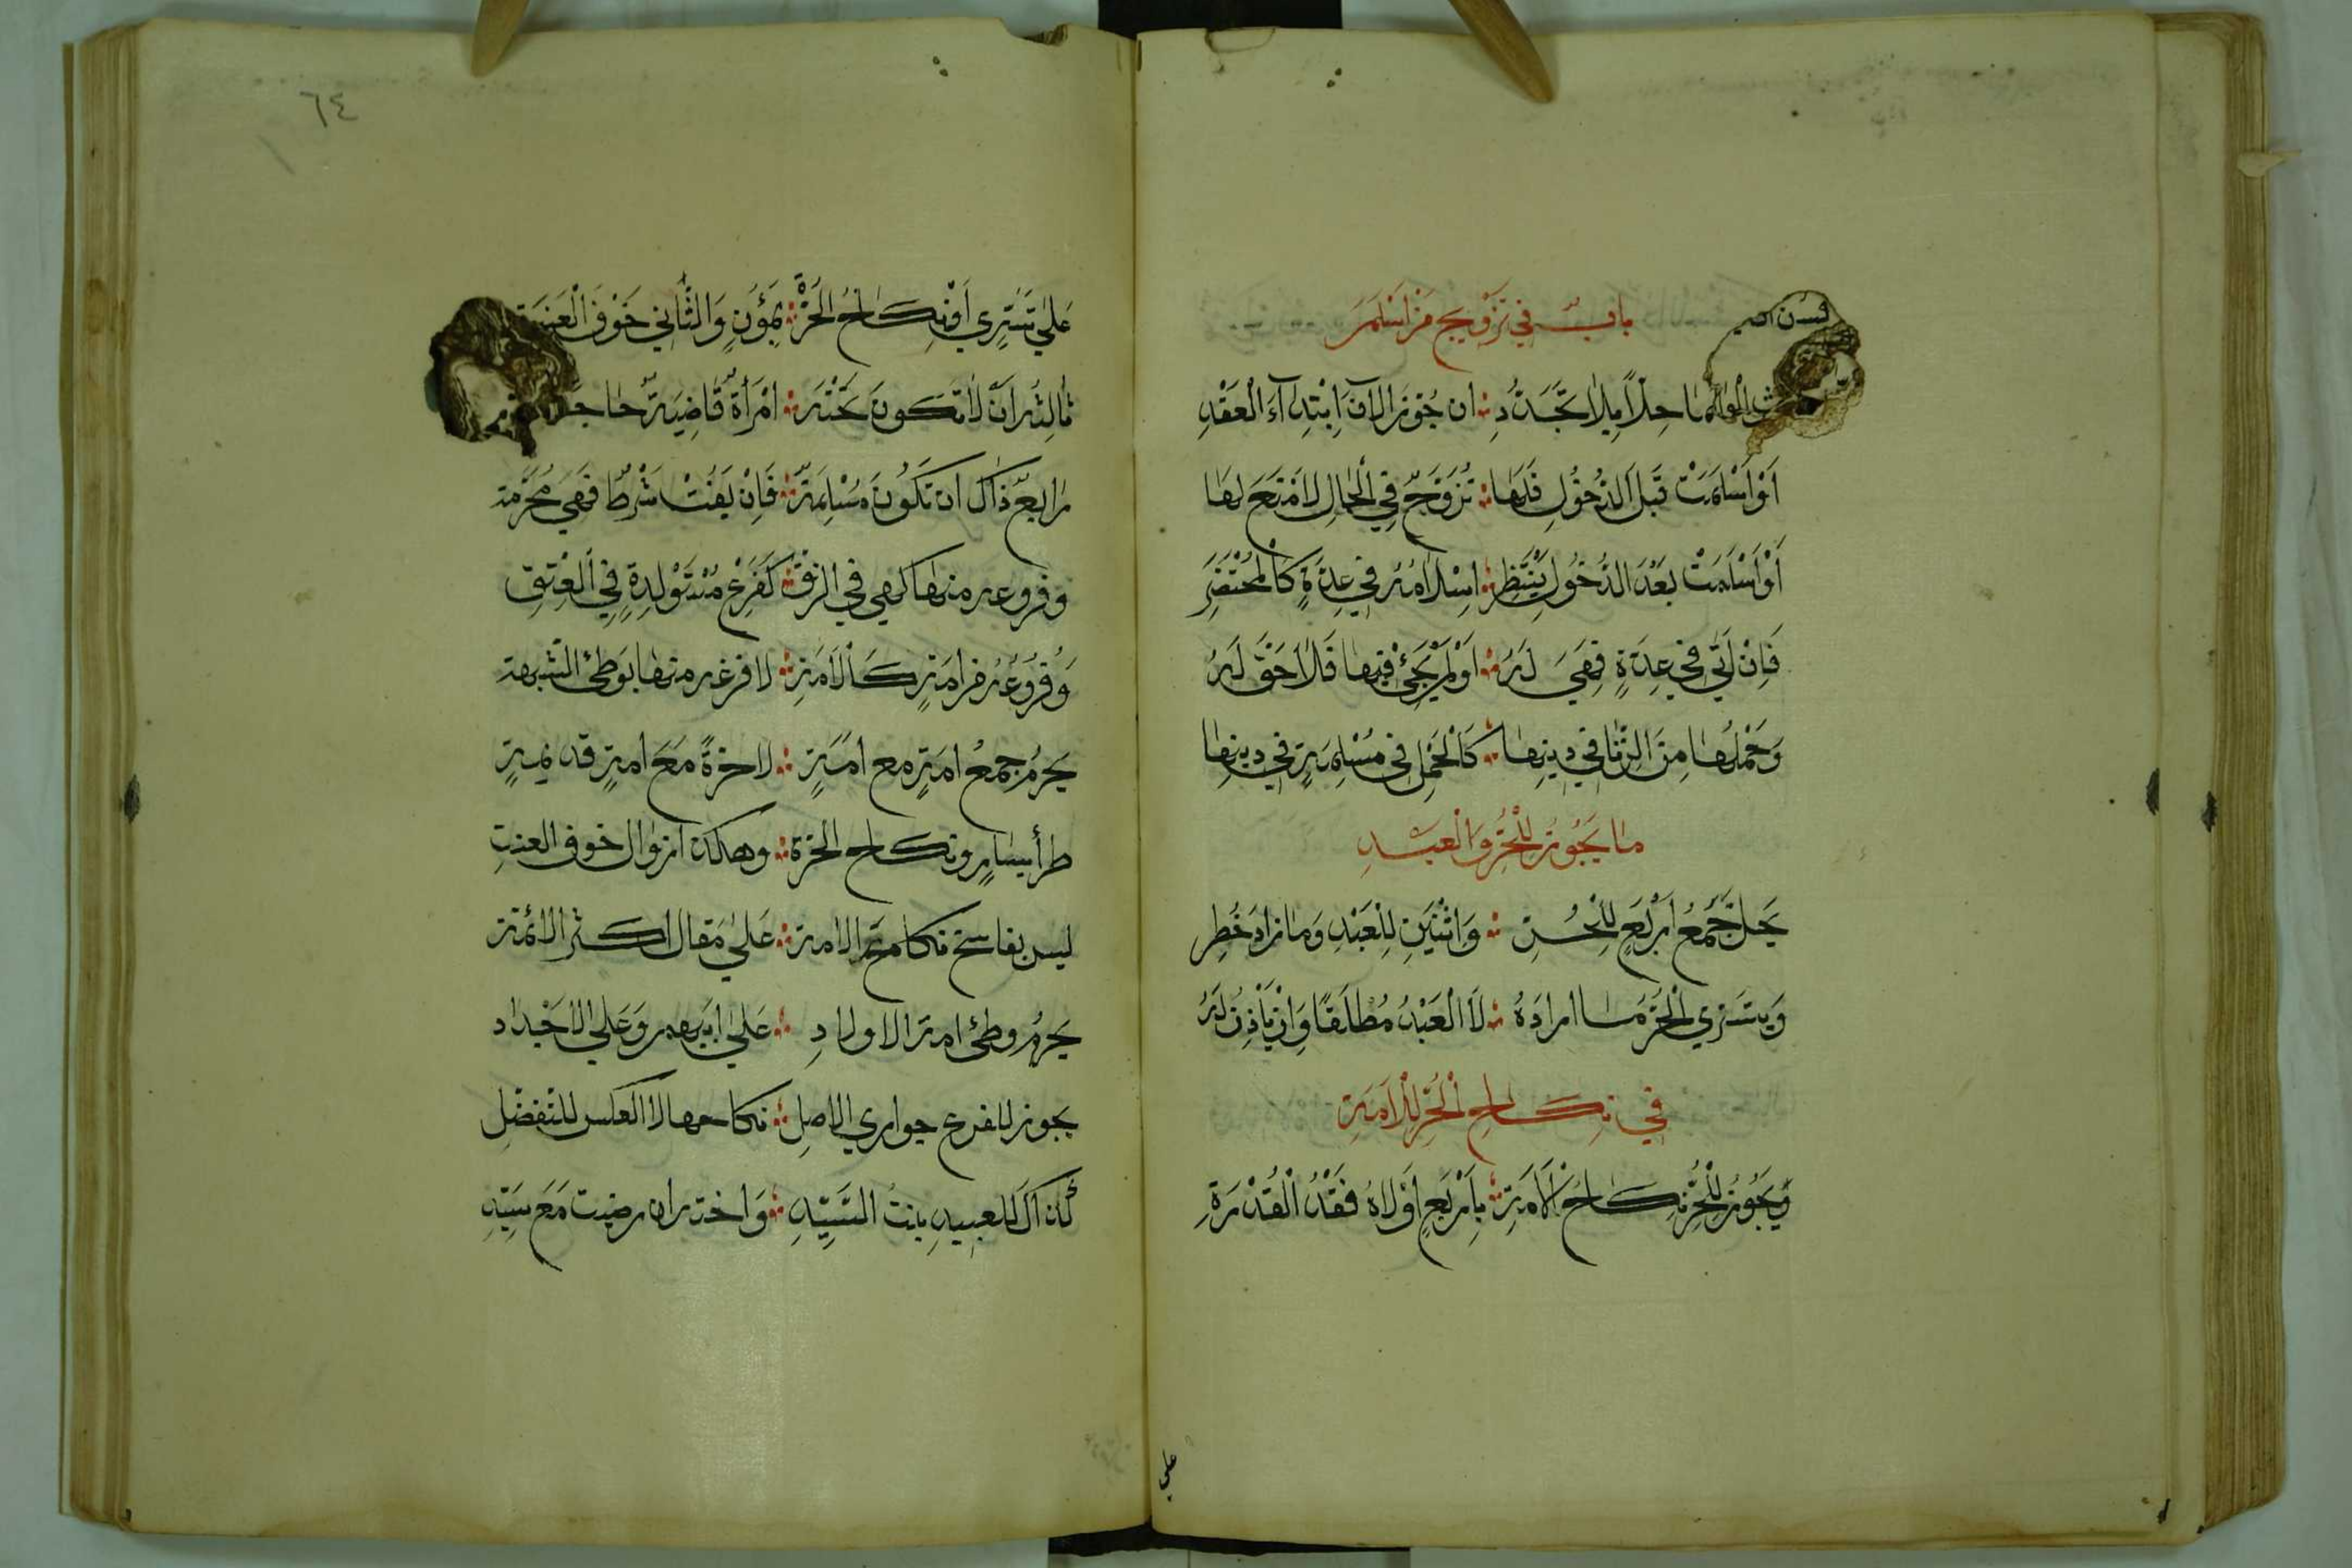 باب في تزويج من أسلم
حلا بلا تجدد ∴ ان جوز الان ابتداء العقد
أو أسلمت قبل الدخول فلها ∴ تزوج في الحال لا متع لها
أو أسلمت بعد الدخول ينتظر ∴ اسلامه في عدة كالمحتضر
فإن اتى في عدة فهي له ∴ أو لم يجئ فيها فلا حق له
وحملها من الزنا في دينها ∴ كالحمل في مسلمة في دينها
ما يجوز للحر والعبد
يحل جمع أربع للحر ∴ واثنين للعبد وما زاد حُظِر
ويتسري الحر ما اراده ∴ لا العبد مطلقا وان ياذن له
في نكاح الحر للامة
ويجوز للحر نكاح الأمة ∴ باربع أولاه فقد القدرة
علي
٦٤
علي تسري أو نكاح الحرة ∴ بمؤن والثاني خوف العنت
ثالثه ان لا تكون تحته ∴ امرأة قاضية
رابع ذاك ان تكون مسلمة ∴ فإن يفت شرط فهي محرمة
وفروعه منها كهي في الرق ∴ كفرع مستولدة في العتق
وفروعه من امته كالامة ∴ لا فرغه منها بوطئ الشبهة
يحرم جمع امة مع امة ∴ لا حرة مع امة قديمة
طرأ يسار ونكاح الحرة ∴ وهكذا زوال خوف العنت
ليس بفاسخ نكاح تم الامة ∴ علي مقال اكثر الائمة
يحرم وطئ امة الاولاد ∴ علي ابيهم وعلي الاجداد
يجوز للفرع جواري الاصل ∴ نكاحها لا العكس للتفضل
كذاك للعبيد بنت السيد ∴ واخته ان رضيت مع سيد